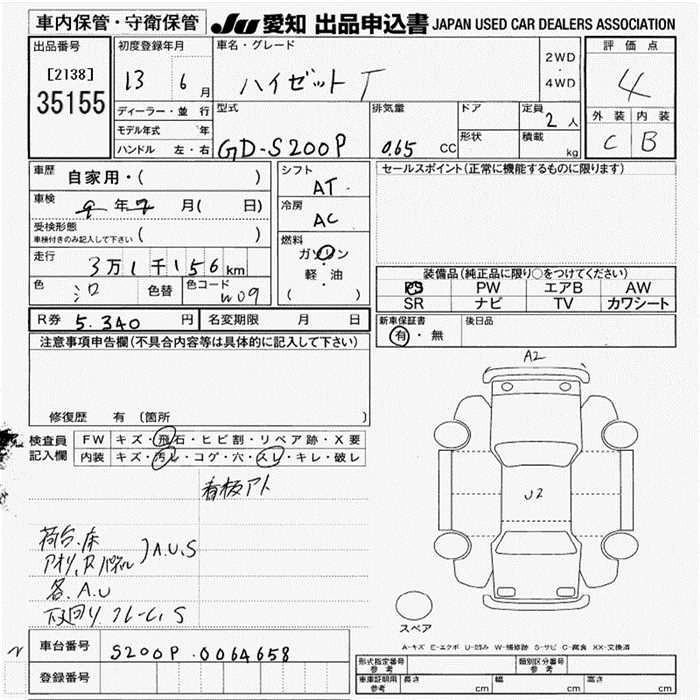 車内保管・守衛保管 JU 愛知 出品申込書 JAPAN USED CAR DEALERS ASSOCIATION
出品番号 初度登録年月 車名・グレード 評価点
[2138] 13 6月 ハイゼット T 2WD・4WD 4
35155
ディーラー・並行 型式 排気量 ドア 定員 2人 外装 内装
モデル年式 年 形状 積載 kg C B
ハンドル 左・右 GD-S200P 0.65 CC
車歴 自家用・( ) シフト AT セールスポイント(正常に機能するものに限ります)
車検 9年7月( 日) 冷房 AC
受検形態
車検付きのみ記入して下さい ( ) 燃料 ガソリン
走行 3万1千156km 軽・油 装備品(純正品に限り○をつけてください)
色 シロ 色替 色コード W09 ( ) PS PW エアB AW
SR ナビ TV カワシート
R券 5.340円 名変期限 月 日 新車保証書 後日品
有・無
注意事項申告欄(不具合内容等は具体的に記入して下さい)
A2
修復歴 有 (箇所 )
検査員 FW キズ・飛石・ヒビ割・リペア跡・X要
記入欄 内装 キズ・汚レ・コゲ・穴・スレ・キレ・破レ
看板アト
U2
荷台.床
アオリ,Rパネル )A.U.S
各.A.U
下回り.フレームS
スペア
A-キズ E-エクボ U-凹み W-補修跡 S-サビ C-腐食 XX-交換済
車台番号 S200P-0064658
登録番号
形式指定番号 参考 類別区分番号 参考
車庫証明用 参考 長さ cm 幅 cm 高さ cm